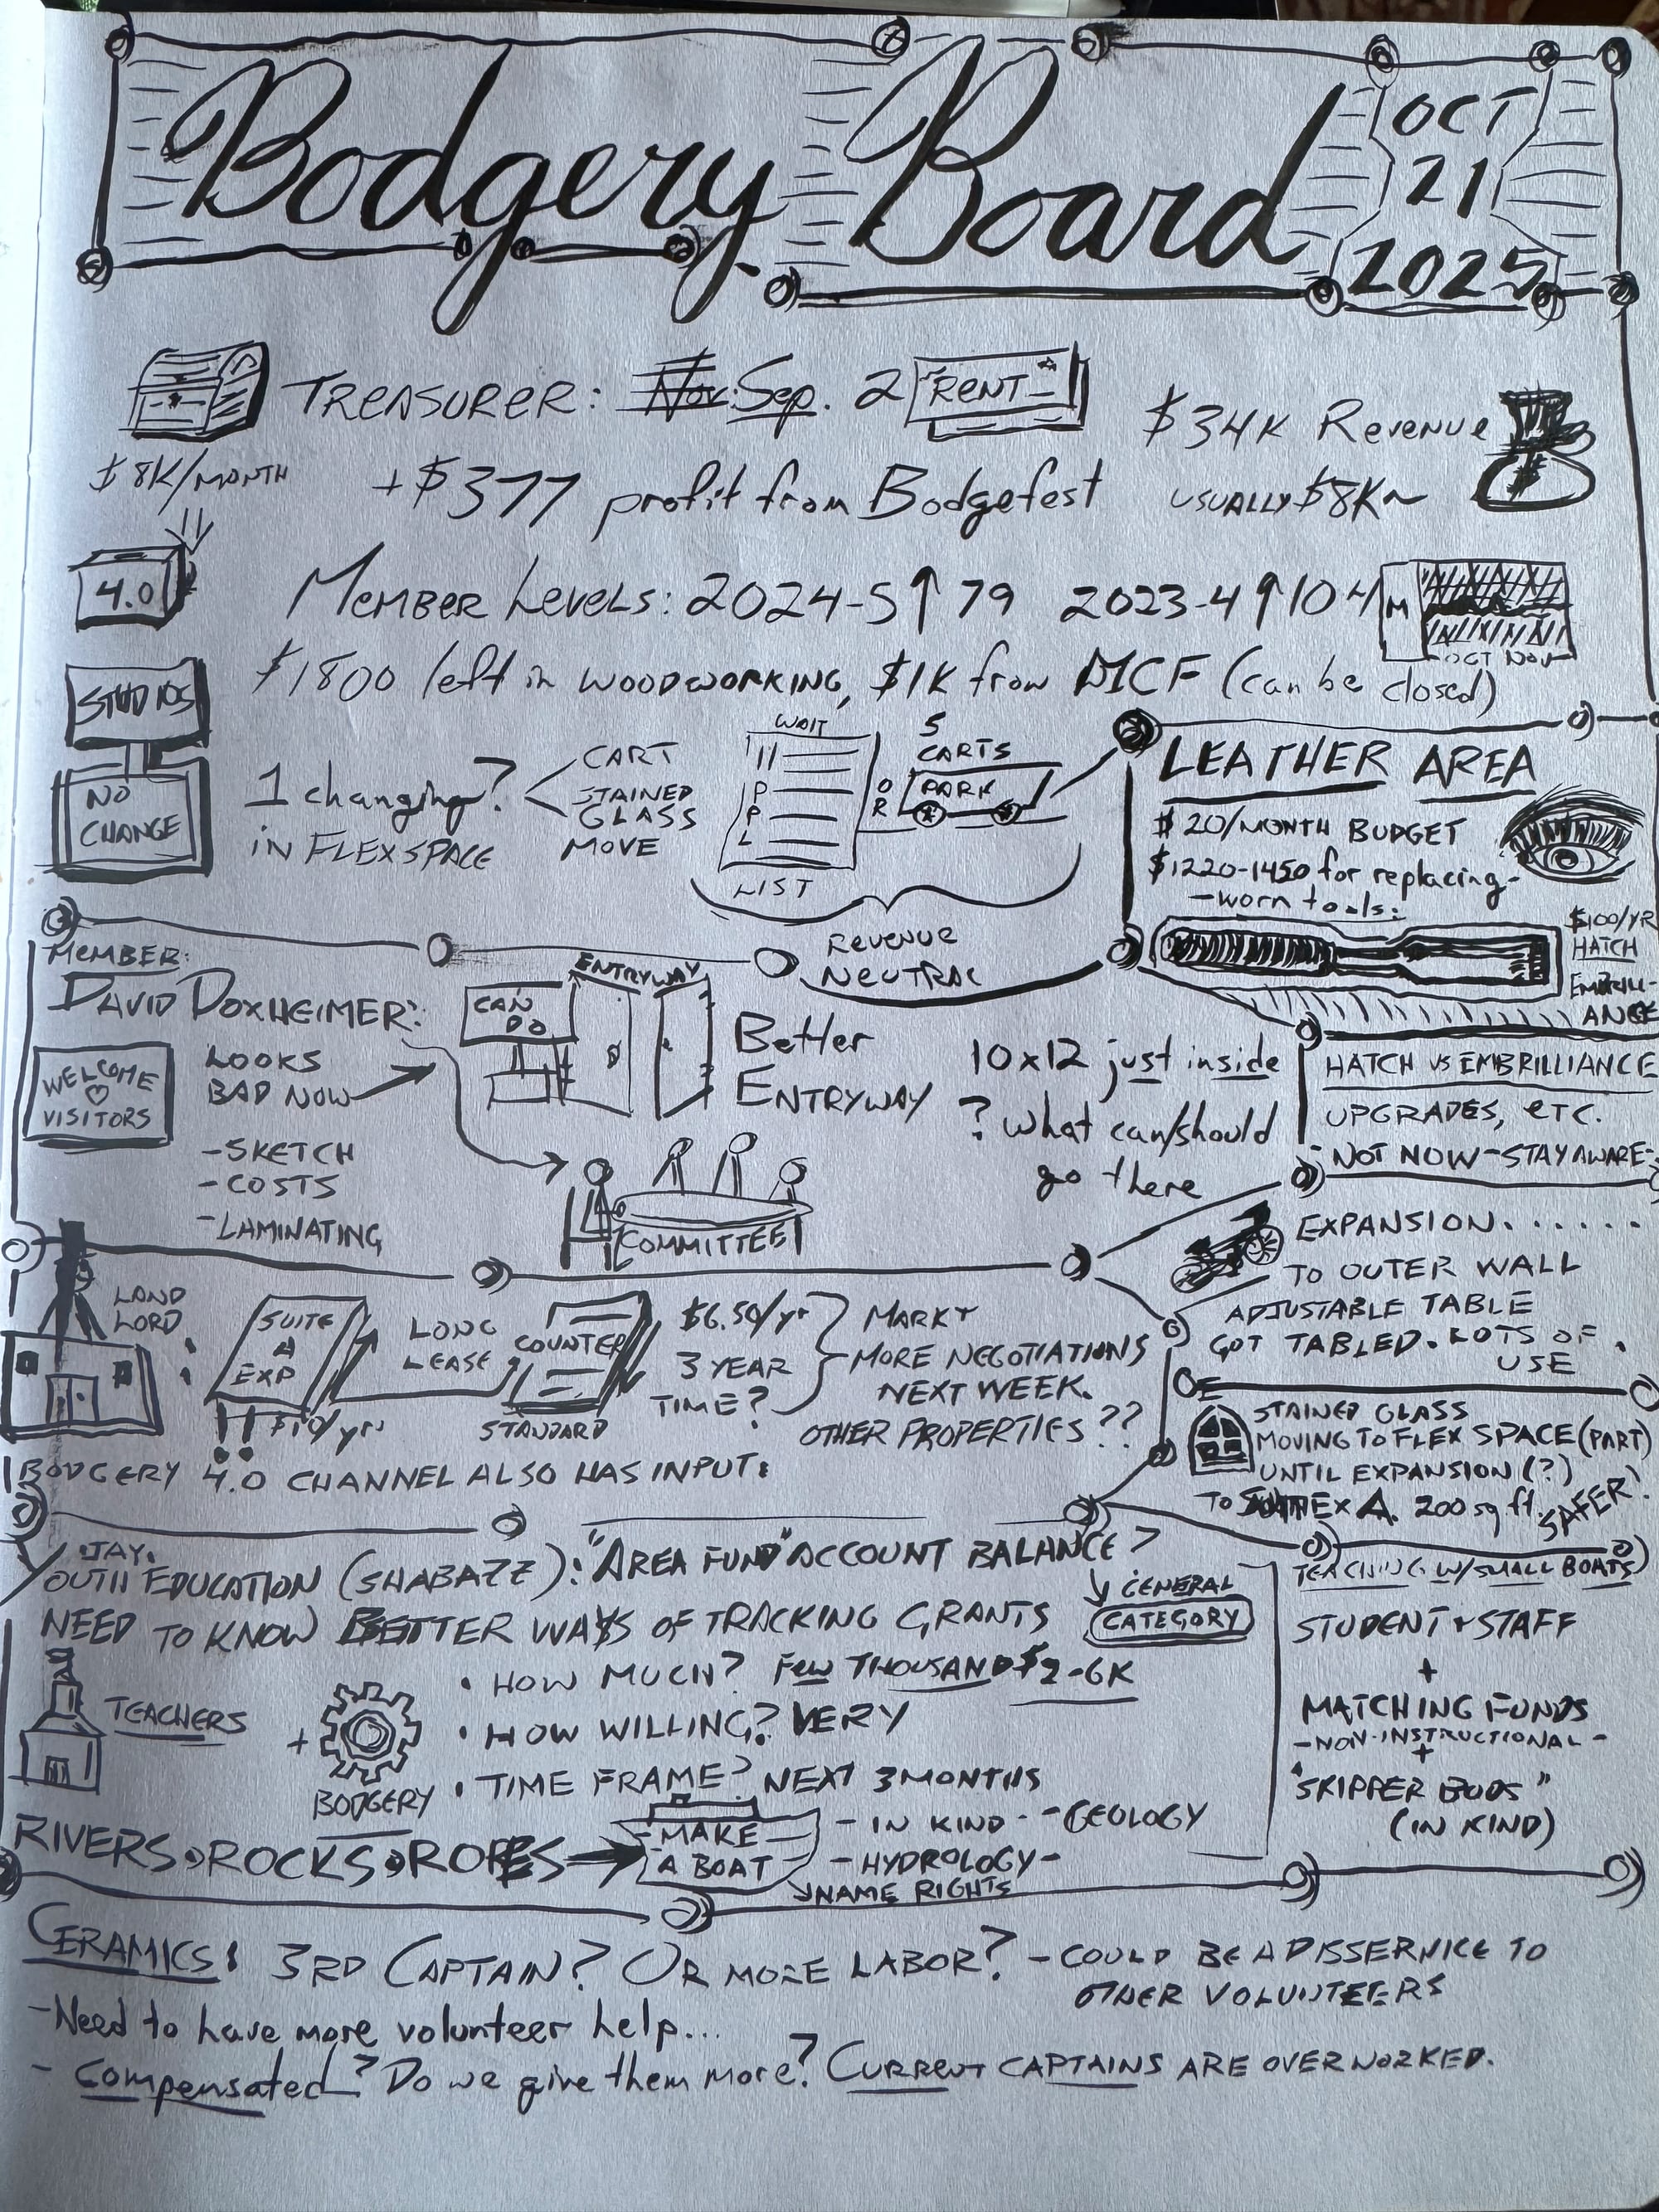 Bodgery Board
OCT
21
2025
TREASURER: Nov. Sep. 2 RENT
$34K Revenue
$8K/MONTH
+$377 profit from Bodgefest
USUALLY $8K~
4.0
MEMBER LEVELS: 2024-5↑79 2023-4↑104
M
OCT NOV
$1800 left in WOODWORKING, $1K from MCF (can be closed)
STUDIOS
NO
CHANGE
1 changing?
in FLEXSPACE
CART
STAINED
GLASS
MOVE
WAIT
111
P
P
L
LIST
OR
5
CARTS
PARK
REVENUE
NEUTRAL
LEATHER AREA
$20/MONTH BUDGET
$1220-1450 for replacing-
-worn tools:
$100/YR
HATCH
EMBRILL-
ANCE
HATCH VS EMBRILLIANCE
UPGRADES, ETC.
-NOT NOW-STAY AWARE-
MEMBER:
DAVID DOXHEIMER:
WELCOME
♡
VISITORS
LOOKS
BAD NOW
-SKETCH
-COSTS
-LAMINATING
CAN
DO
ENTRYWAY
Better
ENTRYWAY
10x12 just inside
? what can/should
go there
COMMITTEE
EXPANSION.......
TO OUTER WALL
ADJUSTABLE TABLE
GOT TABLED. LOTS OF
USE
LAND
LORD:
SUITE
A
EXP
!! $10/yr
LONG
LEASE
COUNTER
STANDARD
$6.50/yr
3 YEAR
TIME?
MARKY
MORE NEGOTIATIONS
NEXT WEEK.
OTHER PROPERTIES??
BODGERY 4.0 CHANNEL ALSO HAS INPUT:
STAINED GLASS
MOVING TO FLEX SPACE (PART)
UNTIL EXPANSION (?)
TO A. 200 sq ft. SAFER!
·JAY·
YOUTH EDUCATION (SHABAZZ): "AREA FUND" ACCOUNT BALANCE?
GENERAL
CATEGORY
NEED TO KNOW BETTER WAYS OF TRACKING GRANTS
TEACHERS
+
BODGERY
• HOW MUCH? FEW THOUSAND $2-6K
• HOW WILLING? VERY
• TIME FRAME? NEXT 3 MONTHS
RIVERS•ROCKS•ROPES
MAKE
A BOAT
- IN KIND - -GEOLOGY
-HYDROLOGY-
NAME RIGHTS
TEACHING W/SMALL BOATS
STUDENT + STAFF
+
MATCHING FUNDS
-NON-INSTRUCTIONAL-
+
"SKIPPER BUDS"
(IN KIND)
CERAMICS: 3RD CAPTAIN? OR MORE LABOR? - COULD BE A DISSERVICE TO
OTHER VOLUNTEERS
-Need to have more volunteer help...
- Compensated? Do we give them more? CURRENT CAPTAINS ARE OVERWORKED.